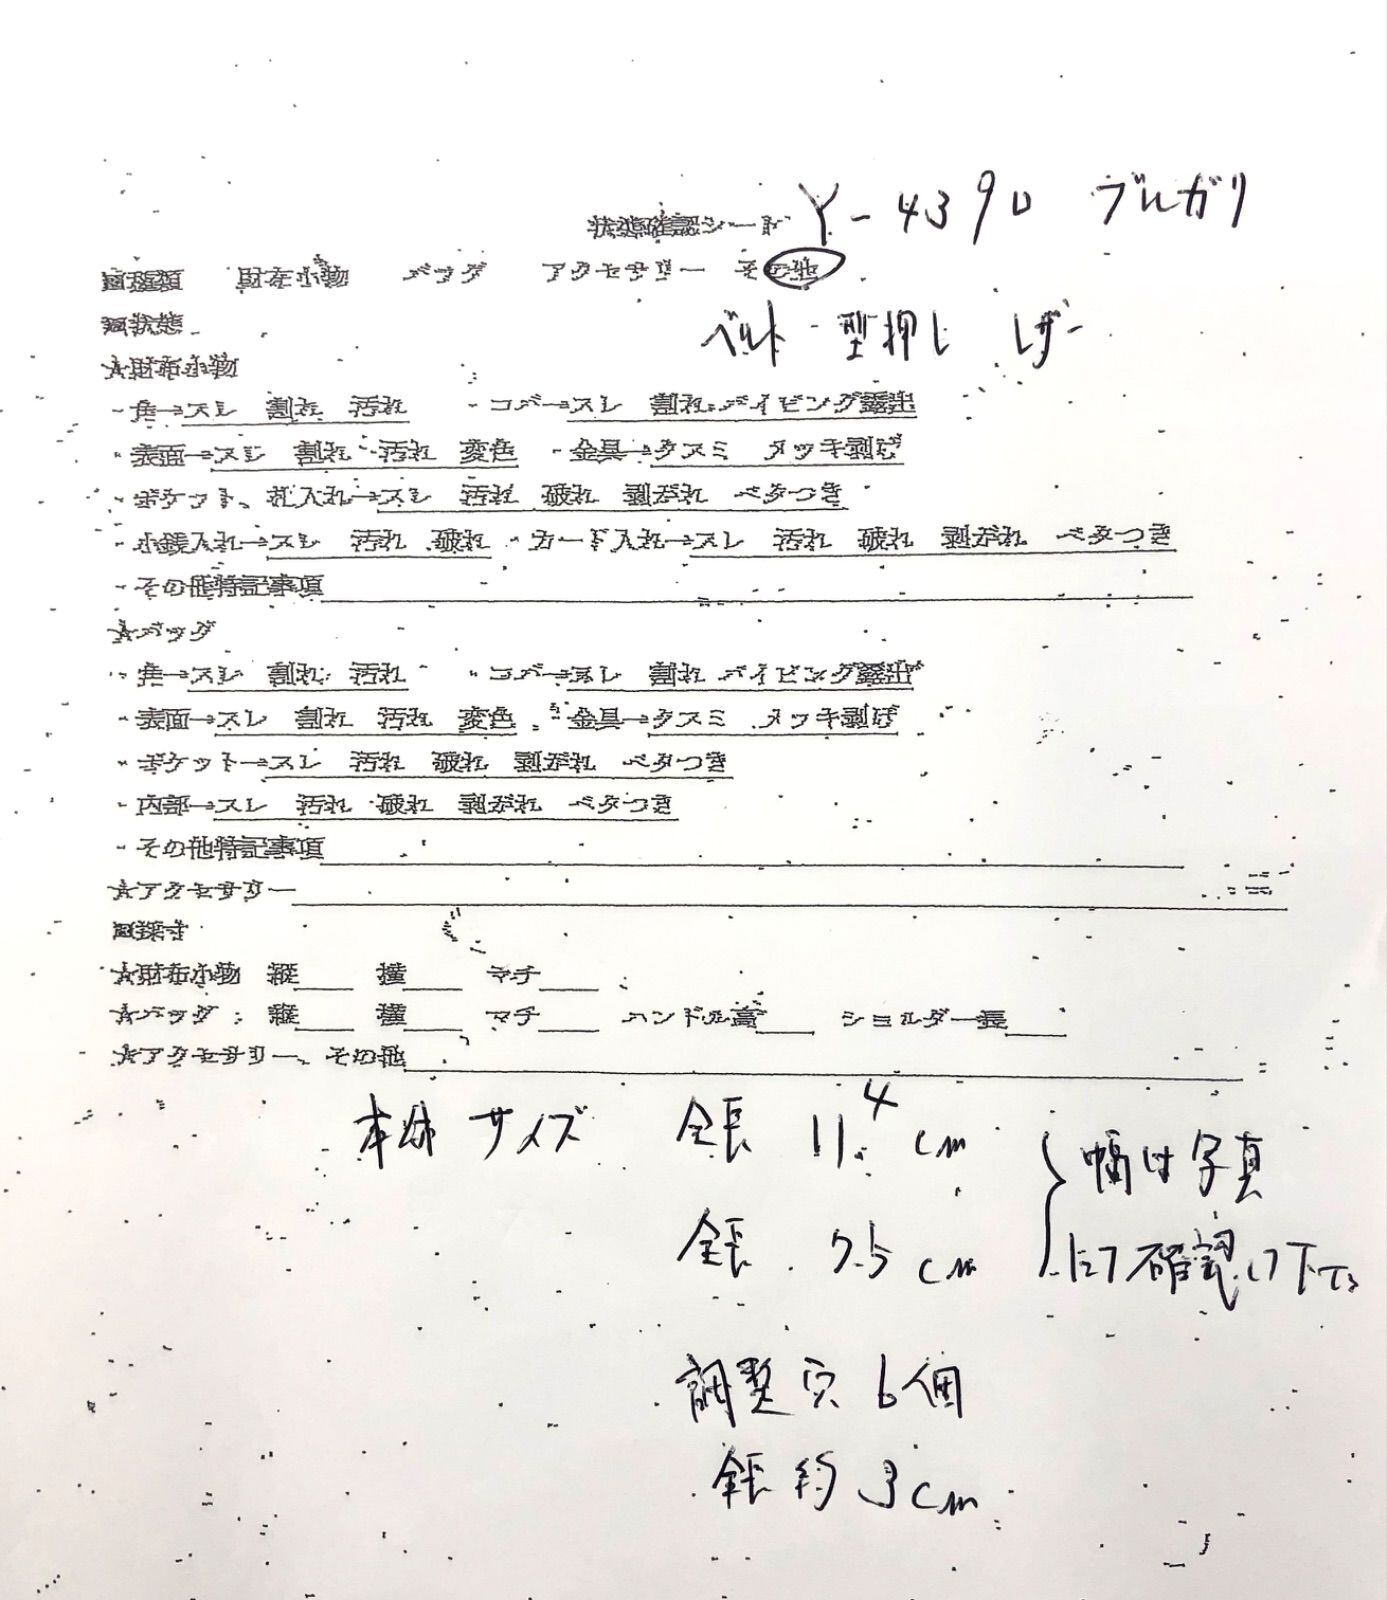 状態確認シート Y-4390 ブルガリ
■種類 財布小物 バッグ アクセサリー その他
■状態 ベルト 型押し レザー
★財布小物
・角→スレ 割れ 汚れ ・コバ→スレ 割れ パイピング露出
・表面→スレ 割れ 汚れ 変色 ・金具→クスミ メッキ剥げ
・ポケット、札入れ→スレ 汚れ 破れ 剥がれ ベタつき
・小銭入れ→スレ 汚れ 破れ ・カード入れ→スレ 汚れ 破れ 剥がれ ベタつき
・その他特記事項
★バッグ
・角→スレ 割れ 汚れ ・コバ→スレ 割れ パイピング露出
・表面→スレ 割れ 汚れ 変色 ・金具→クスミ メッキ剥げ
・ポケット→スレ 汚れ 破れ 剥がれ ベタつき
・内部→スレ 汚れ 破れ 剥がれ ベタつき
・その他特記事項
★アクセサリー
■採寸
★財布小物 縦 横 マチ
★バッグ 縦 横 マチ ハンドル高 ショルダー長
★アクセサリー、その他
本体サイズ 全長 11.4cm 幅は写真
全長 7.5cm にて確認して下さい
調整穴 6個
全長 約 3cm